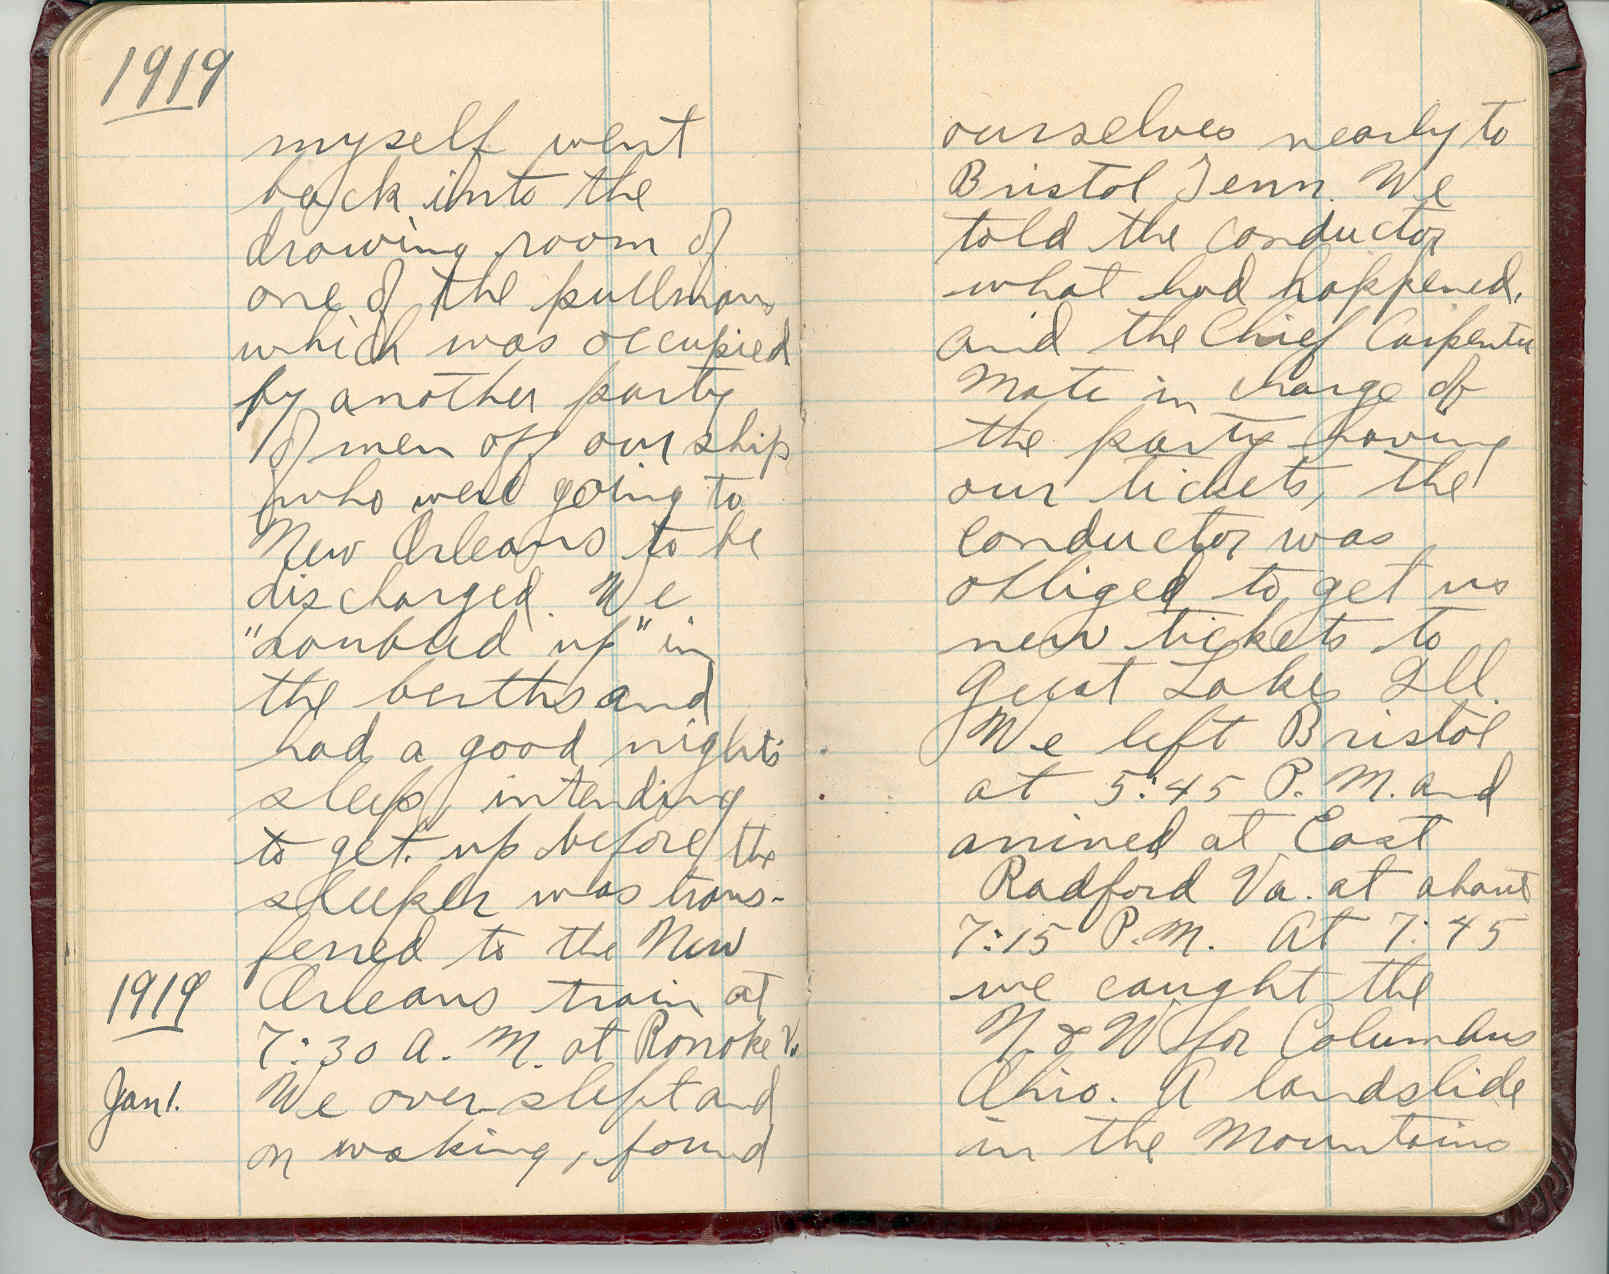 1919
myself went
back into the
drawing room of
one of the pullmans
which was occupied
by another party
of men off our ship
who were going to
New Orleans to be
discharged. We
"doubled up" in
the berths and
had a good night's
sleep, intending
to get up before the
sleeper was trans-
ferred to the New
1919
Orleans train at
7:30 A. M. at Ronoke Va
Jan 1.
We over slept and
on waking, found
ourselves nearly to
Bristol Tenn. We
told the conductor
what had happened,
and the Chief Carpenter
Mate in charge of
the party having
our tickets, the
conductor was
obliged to get us
new tickets to
Great Lakes Ill.
We left Bristol
at 5:45 P. M. and
arrived at East
Radford Va. at about
7:15 P.M. At 7:45
we caught the
N. & W. for Columbus
Ohio. A landslide
in the Mountains